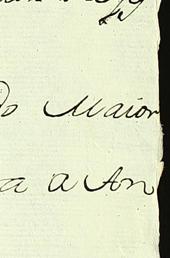 do Maior
a a An